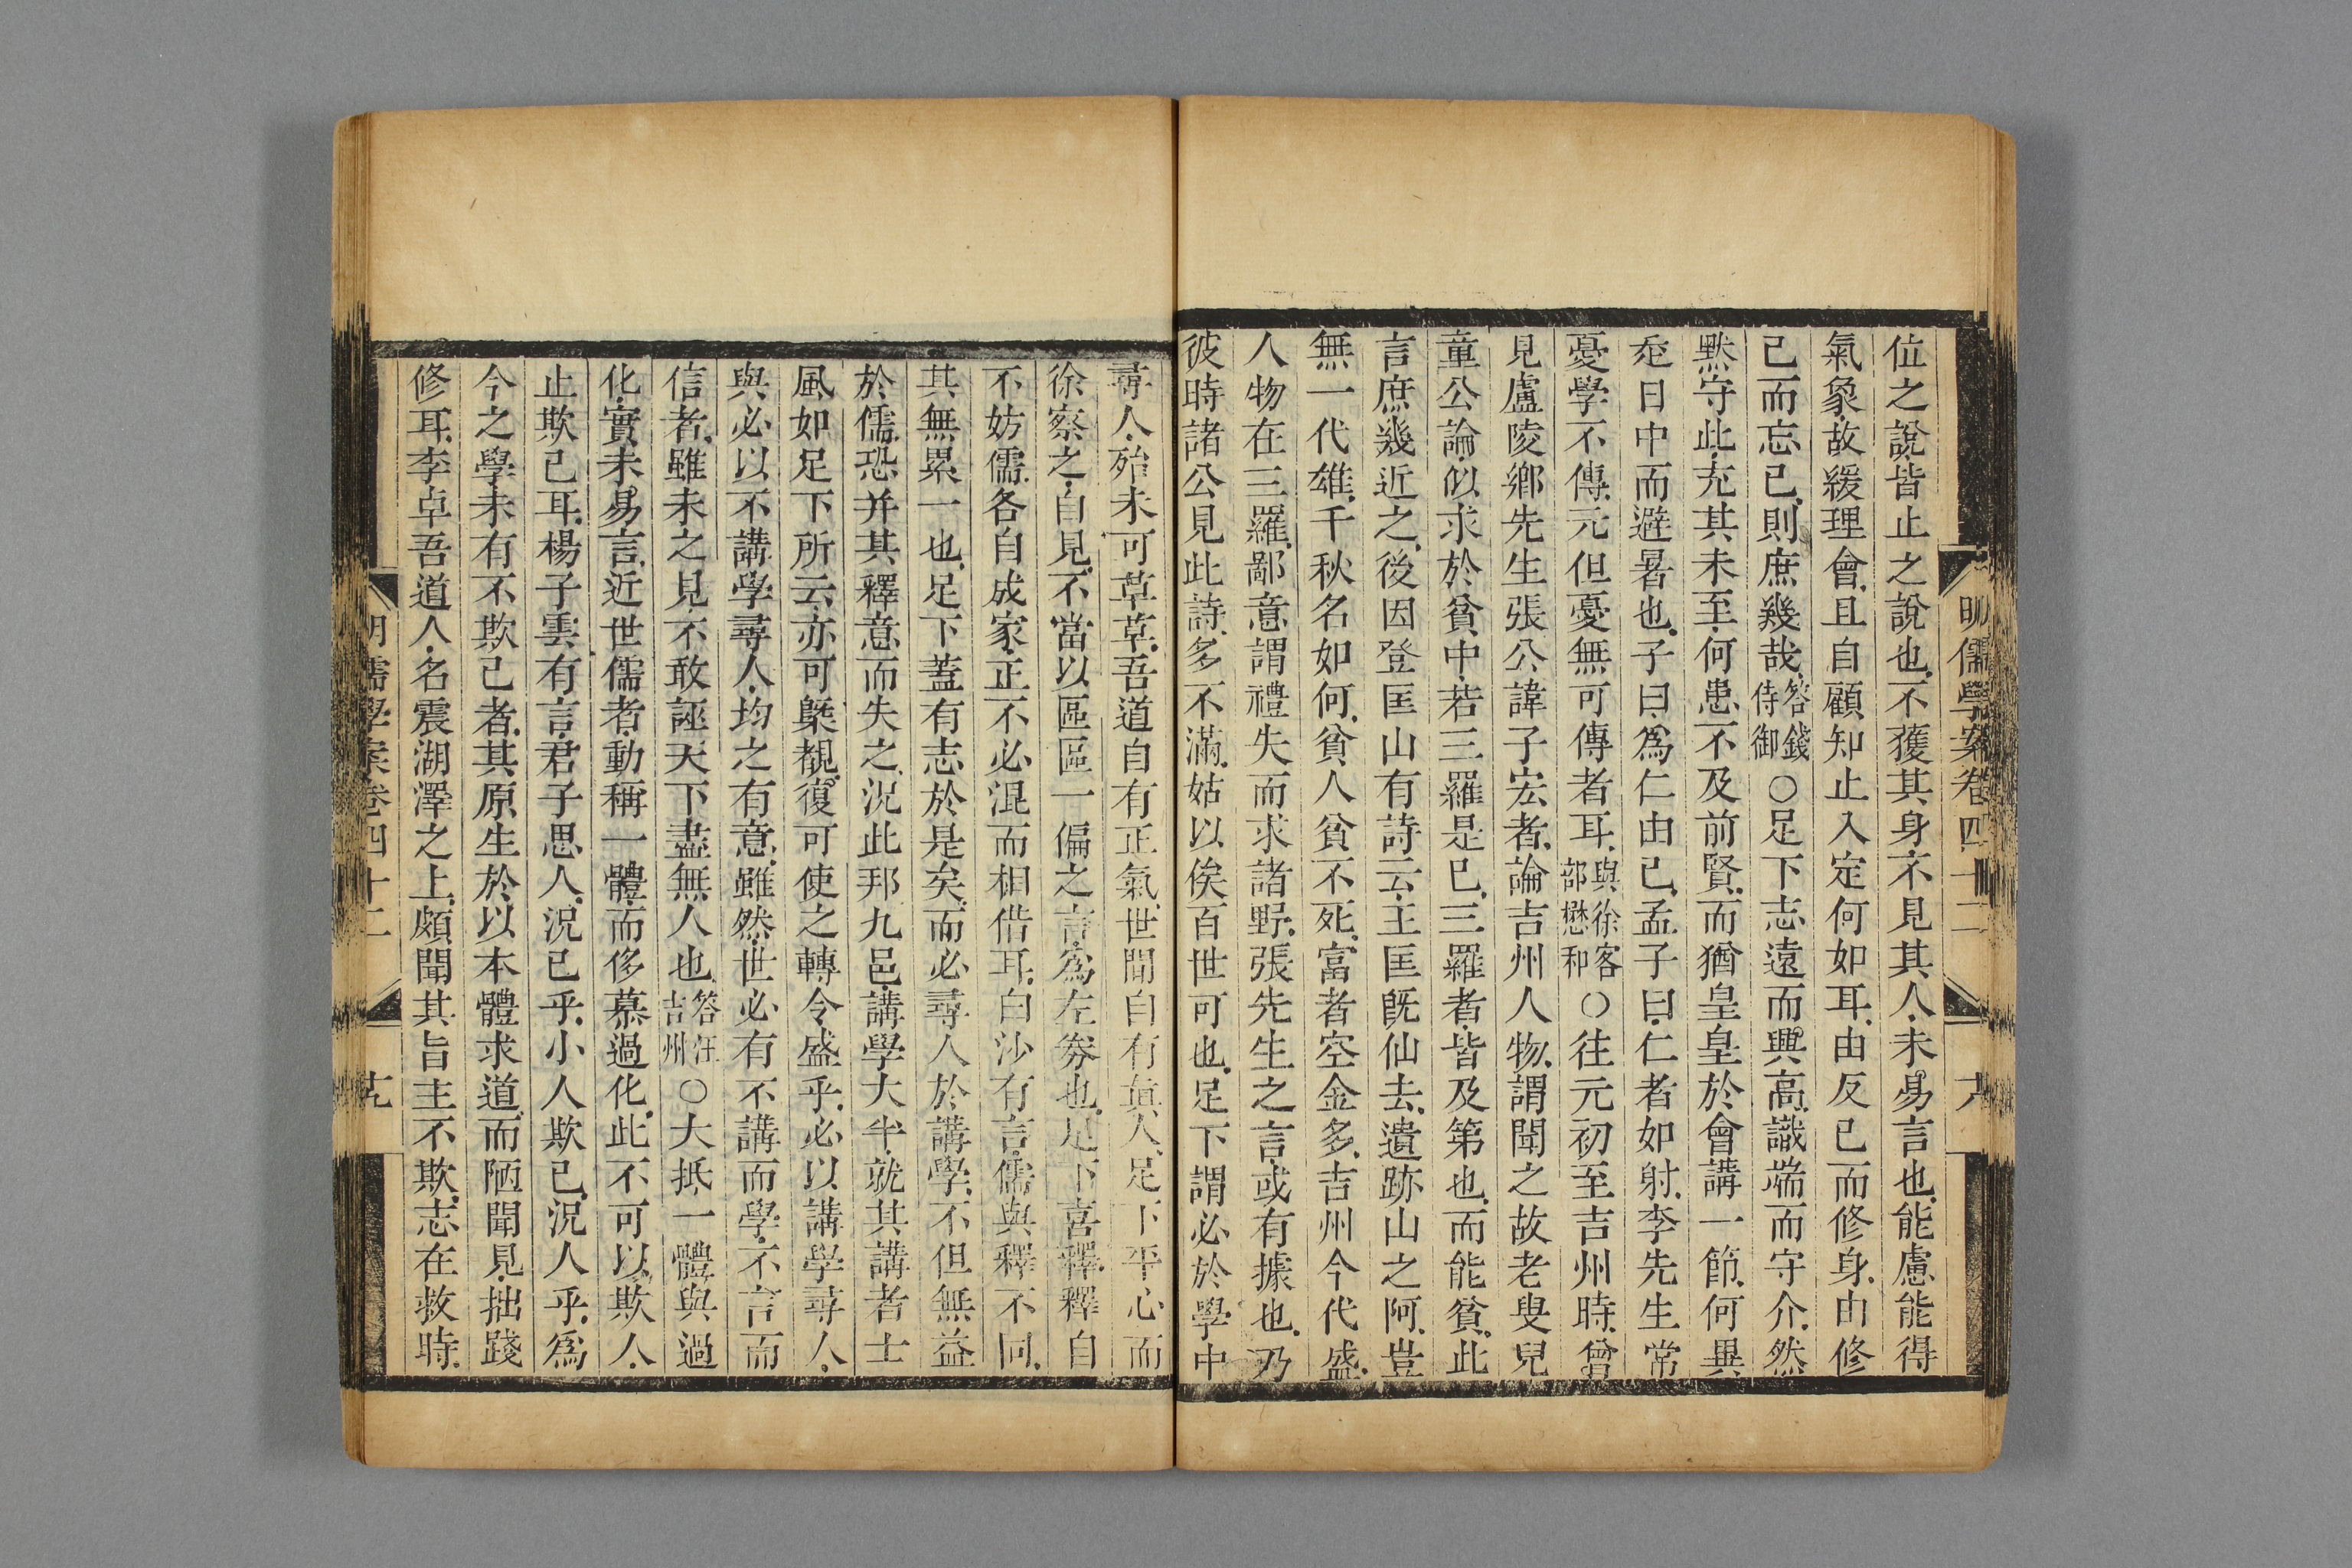 位之說皆止之說也不獲其身不見其人未易言也能慮能得
氣象故緩理會且自顧知止入定何如耳由反己而修身由修
己而忘己則庶幾哉答錢侍御○足下志遠而興高識端而守介然
默守此充其未至何患不及前賢而猶皇皇於會講一節何異
夜日中而避暑也子曰爲仁由己孟子曰仁者如射李先生常
憂學不傳元但憂無可傳者耳與徐客部懋和○往元初至吉州時曾
見盧陵鄉先生張公諱子宏者論吉州人物謂聞之故老叟兒
童公論似求於貧中若三羅是已三羅者皆及第也而能貧此
言庶幾近之後因登匡山有詩云主匡旣仙去遺跡山之阿豈
無一代雄千秋名如何貧人貧不死富者空金多吉州今代盛
人物在三羅鄙意謂禮失而求諸野張先生之言或有據也乃
彼時諸公見此詩多不滿姑以俟百世可也足下謂必於學中
尋人殆未可草草吾道自有正氣世閒自有眞人足下平心而
徐察之自見不當以區區一偏之言爲左券也足下喜釋釋自
不妨儒各自成家正不必混而相借耳白沙有言儒與釋不同
其無累一也足下蓋有志於是矣而必尋人於講學不但無益
於儒恐并其釋意而失之況此邦九邑講學大半就其講者士
風如足下所云亦可槩覩復可使之轉令盛乎必以講學尋人
與必以不講學尋人均之有意雖然世必有不講而學不言而
信者雖未之見不敢誣天下盡無人也答汪吉州○大抵一體與過
化實未易言近世儒者動稱一體而侈慕過化此不可以欺人
止欺己耳楊子雲有言君子思人況己乎小人欺己況人乎爲
今之學未有不欺己者其原生於以本體求道而陋聞見拙踐
修耳李卓吾道人名震湖澤之上頗聞其旨主不欺志在救時
明儒學案卷四十二